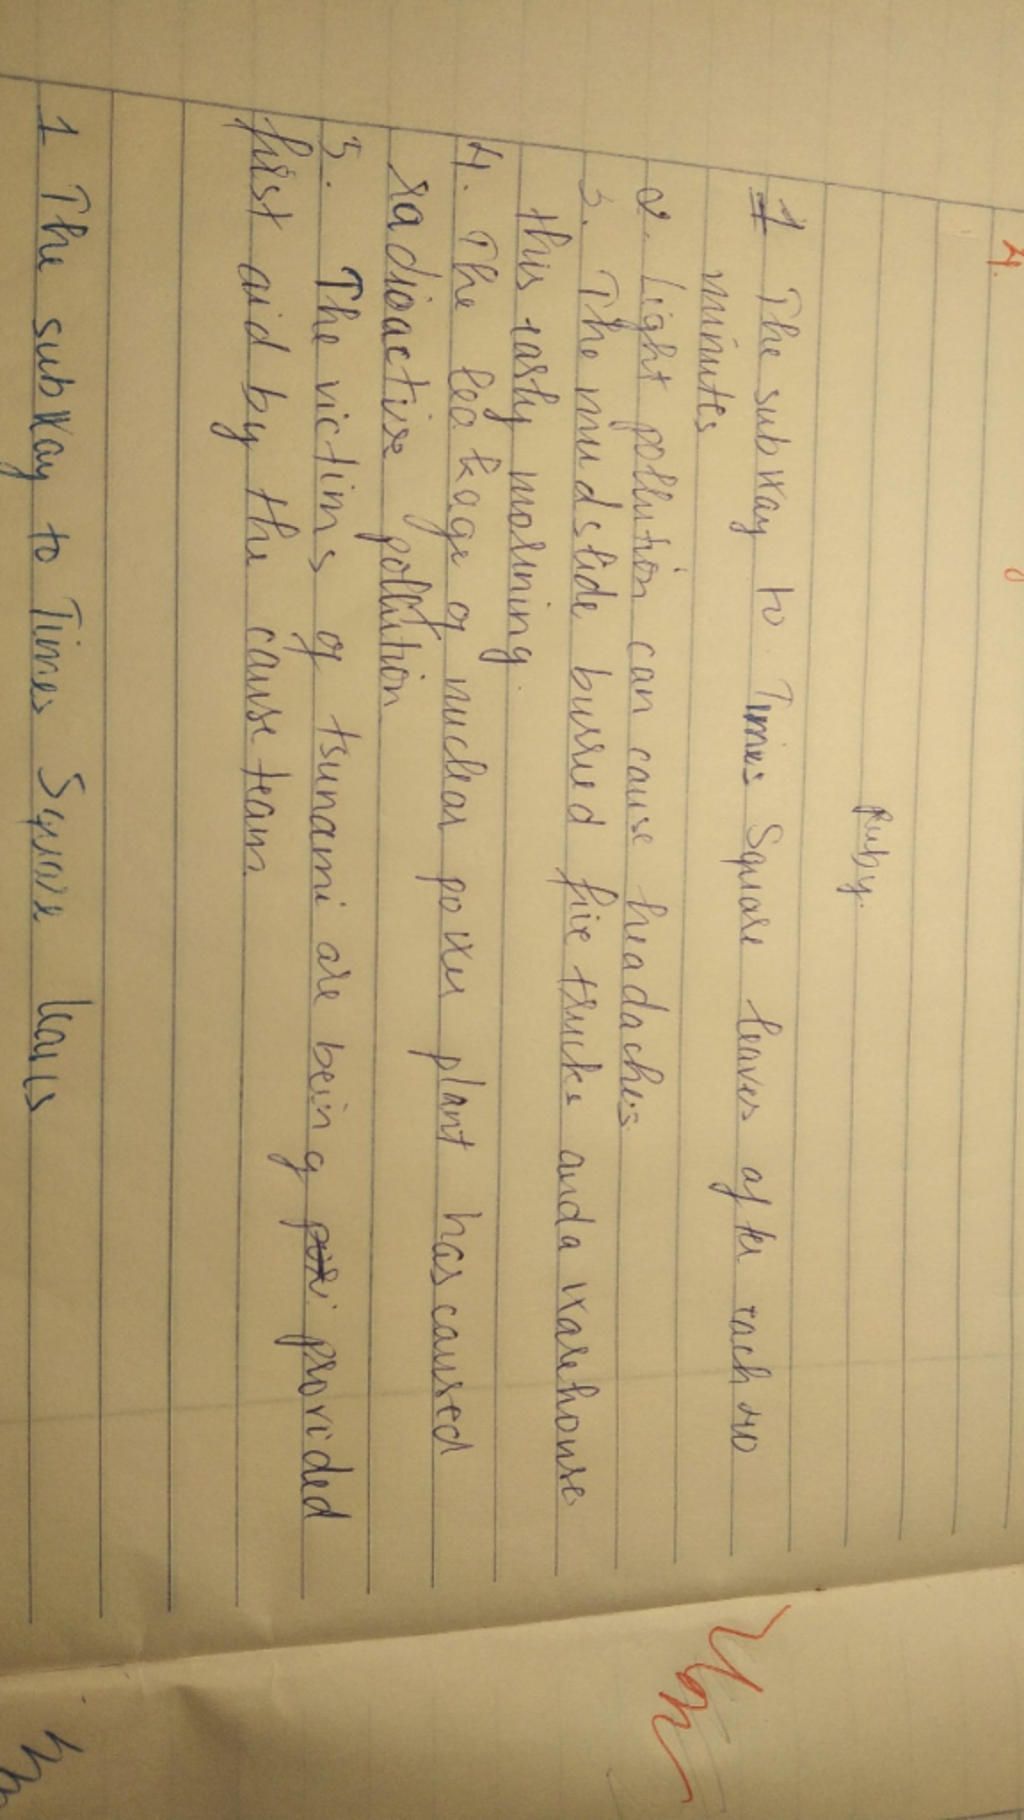 4.
Ruby.
1 The subway to Times Square leaves after each 40
minutes
2. Light pollution can cause headaches.
3. The mudslide burried five trucks and a warehouse
this early morning.
4. The leakage of nuclear power plant has caused
radioactive pollution
5. The victims of tsunami are being provided
first aid by the cause team.
1 The subway to Times Square